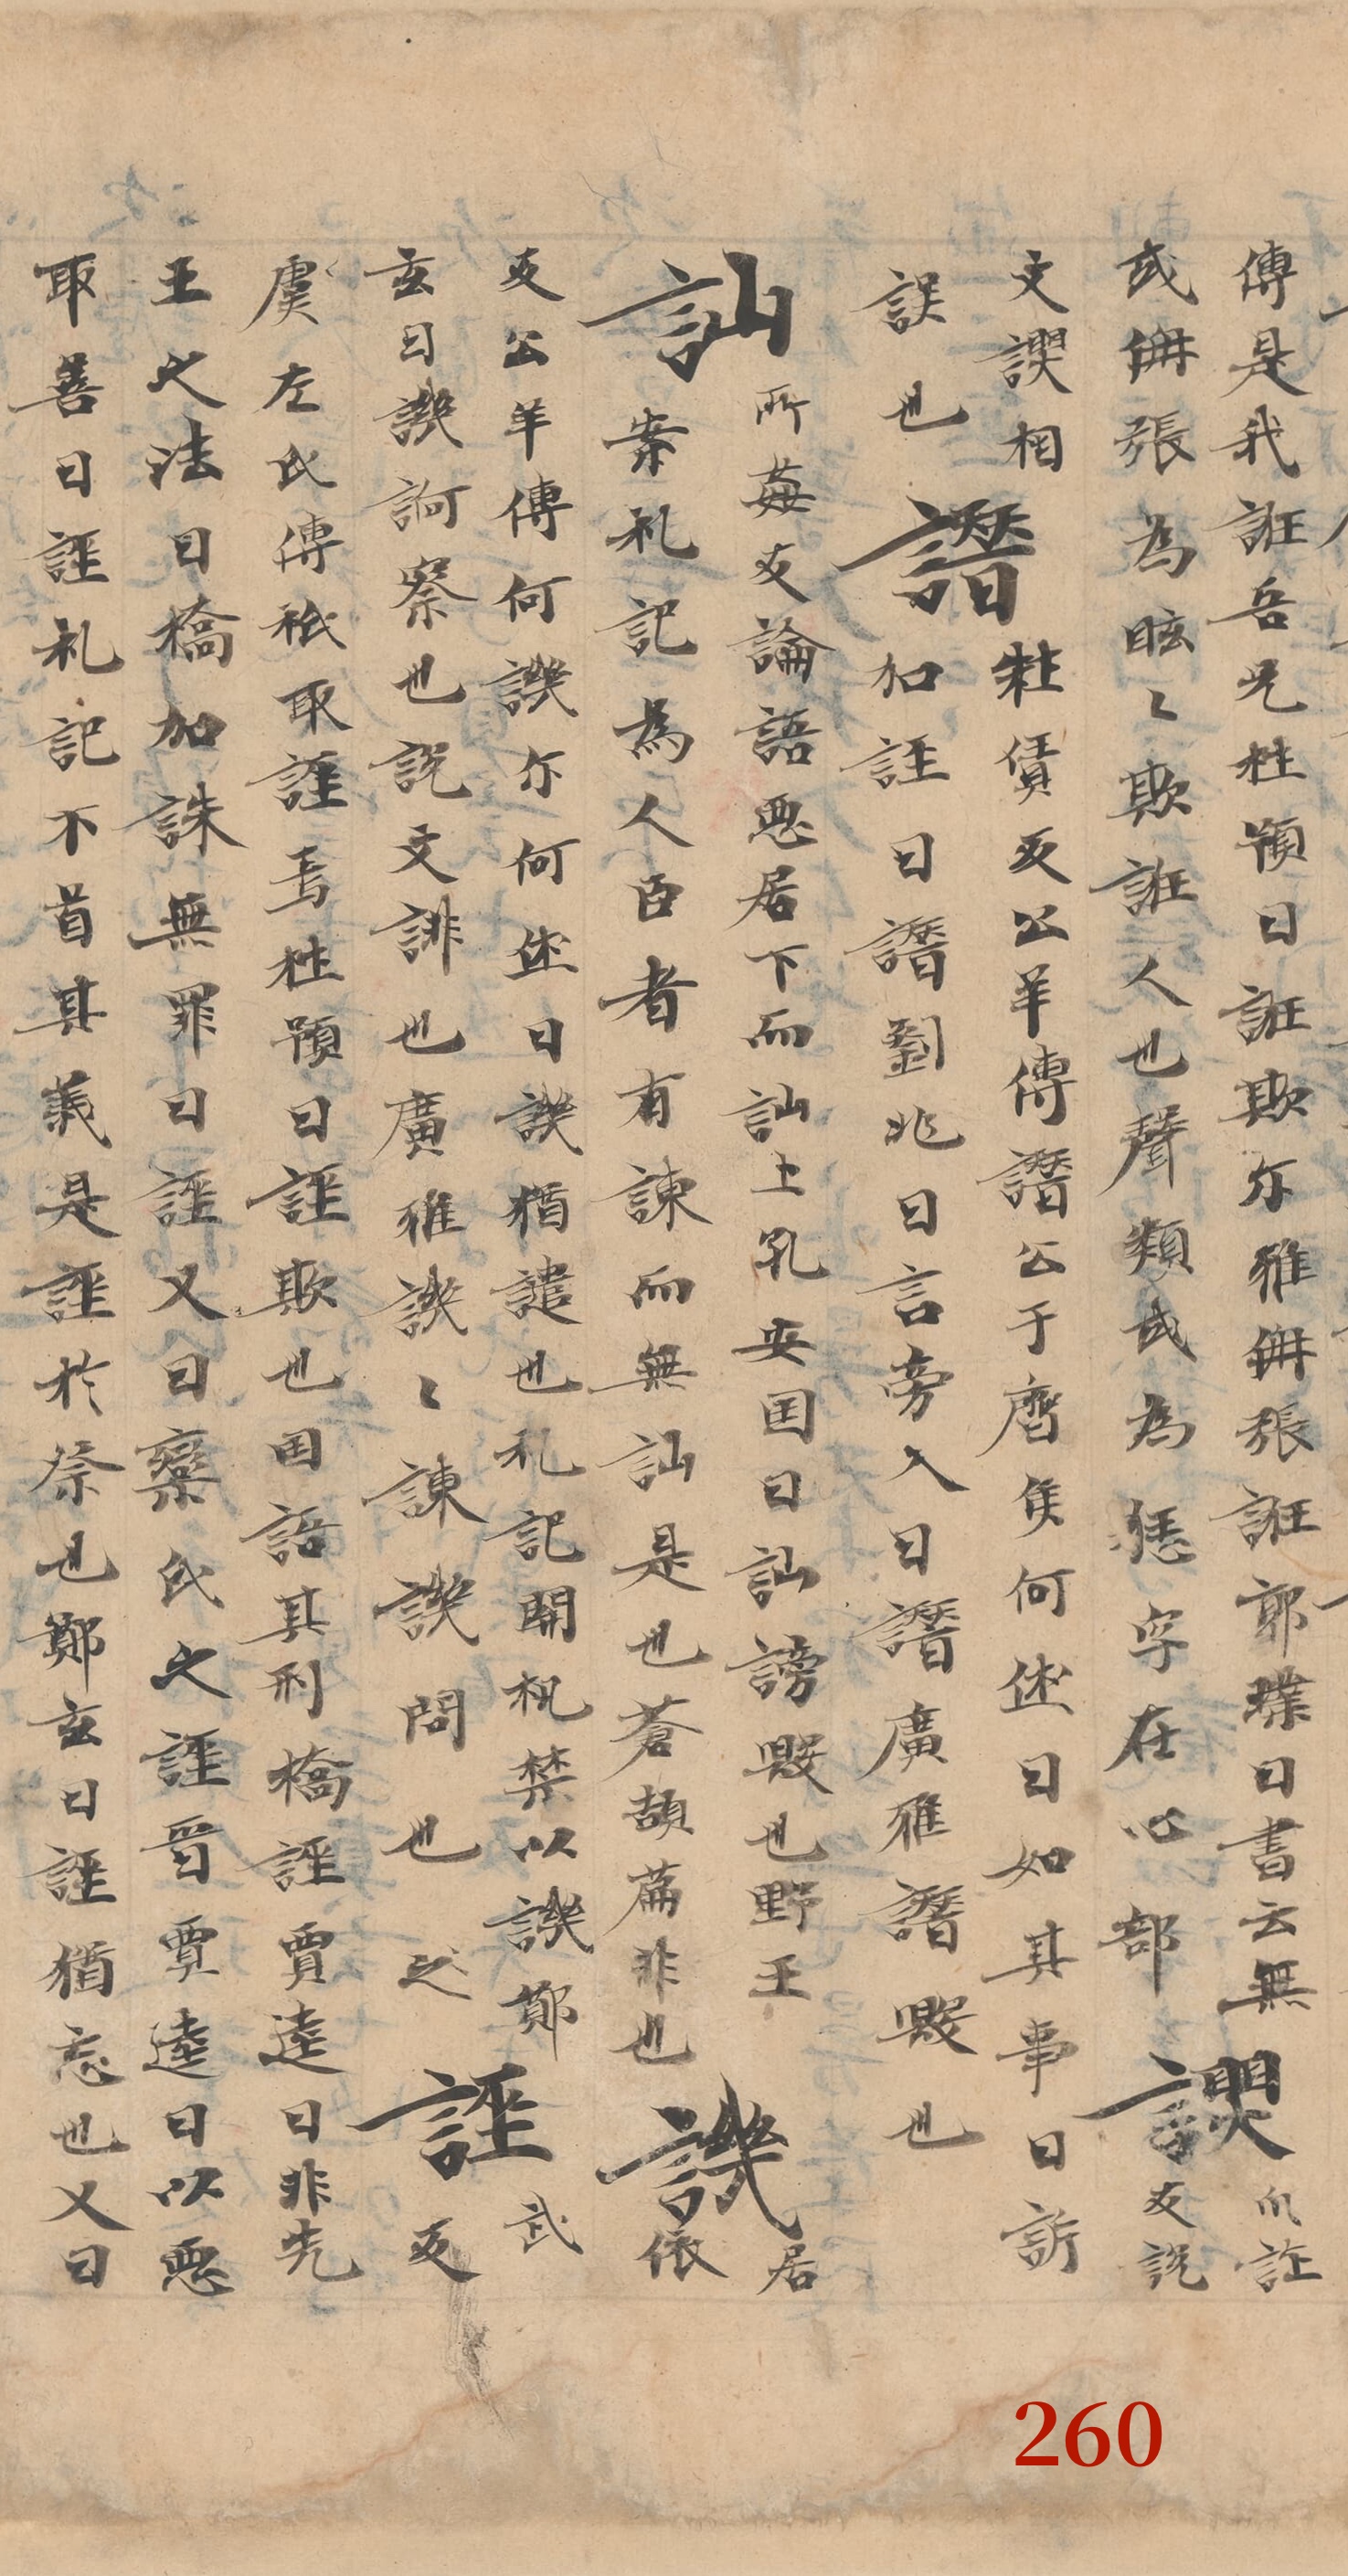 傳是我誑吾兄杜預曰誑欺尓雅侜張誑郭璞曰書云無
或侜張為眩〻欺誑人也聲類或為㤮字在心部
諛
爪詐
反說
文諛相
誤也
譖
牡債反公羊傳譖公于齊侯何休曰如其事曰訴
加誣曰譖劉兆曰言旁入曰譖廣雅譖毀也
訕
所姦反論語惡居下而訕上孔安囯曰訕謗毀也野王
案礼記為人臣者有諫而無訕是也蒼頡萹非也
譏
居
依
反公羊傳何譏尓何休曰譏猶譴也礼記關机禁以譏鄭
玄曰譏訶察也說文誹也廣雅譏〻諫譏問也之
誣
武
反
虞左氏傳秪取誣焉杜預曰誣欺也囯語其刑橋誣賈逵曰非先
王之法曰橋加誅無罪曰誣又曰欒氏之誣晉賈逵曰以惡
取善曰誣礼記不首其義是誣於祭也鄭玄曰誣猶忘也又曰
260